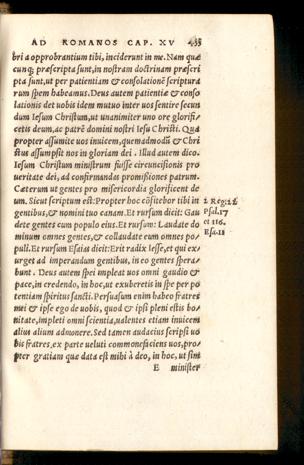 AD ROMANOS CAP. XV 435
bri a opprobrantium tibi, inciderunt in me. Nam quæ
cunq; præscripta sunt, in nostram doctrinam præscri
pta sunt, ut per patientiam & consolationē scriptura
rum spem habeamus. Deus autem patientiæ & conso
lationis det uobis idem mutuo inter uos sentire secun
dum Iesum Christum, ut unanimiter uno ore glorifi
cetis deum, ac patrē domini nostri Iesu Christi. Qua
propter assumite uos inuicem, quemadmodū & Chri
stus assumpsit nos in gloriam dei. Illud autem dico.
Iesum Christum ministrum fuisse circuncisionis pro
ueritate dei, ad confirmandas promissiones patrum.
Cæterum ut gentes pro misericordia glorificent de
um. Sicut scriptum est: Propter hoc cōfitebor tibi in
gentibus, & nomini tuo canam. Et rursum dicit: Gau
dete gentes cum populo eius. Et rursum: Laudate do
minum omnes gentes, & collaudate eum omnes po
puli. Et rursum Esaias dicit: Erit radix Iesse, et qui ex
urget ad imperandum gentibus, in eo gentes spera
bunt. Deus autem spei impleat uos omni gaudio &
pace, in credendo, in hoc, ut exuberetis in spe per po
tentiam spiritus sancti. Persuasum enim habeo fratres
mei & ipse ego de uobis, quod & ipsi pleni estis bo
nitate, impleti omni scientia, ualentes etiam inuicem
alius alium admonere. Sed tamen audacius scripsi uo
bis fratres, ex parte ueluti commonefaciens uos, pro
pter gratiam quæ data est mihi à deo, in hoc, ut sim
E minister
2. Reg. 22
Psal. 17
et 116.
Esa. 11